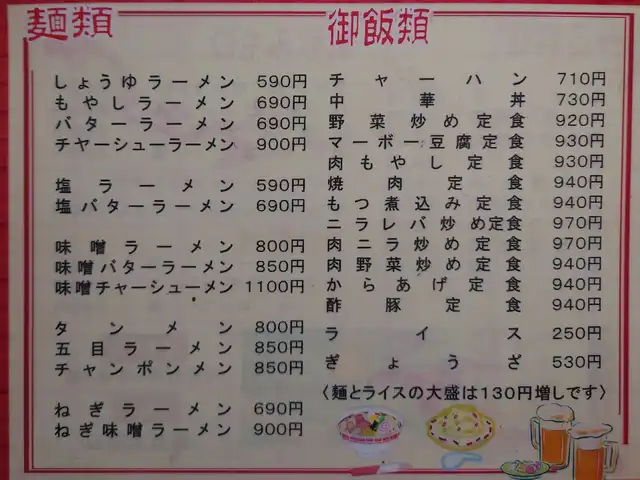 麺類
しょうゆラーメン 590円
もやしラーメン 690円
バターラーメン 690円
チヤーシューラーメン 900円
塩ラーメン 590円
塩バターラーメン 690円
味噌ラーメン 800円
味噌バターラーメン 850円
味噌チャーシューメン 1100円
タンメン 800円
五目ラーメン 850円
チャンポンメン 850円
ねぎラーメン 690円
ねぎ味噌ラーメン 900円
御飯類
チャーハン 710円
中華丼 730円
野菜炒め定食 920円
マーボー豆腐定食 930円
肉もやし定食 930円
焼肉定食 940円
もつ煮込み定食 940円
ニラレバ炒め定食 970円
肉ニラ炒め定食 970円
肉野菜炒め定食 940円
からあげ定食 940円
酢豚定食 940円
ライス 250円
ぎょうざ 530円
〈麺とライスの大盛は130円増しです〉